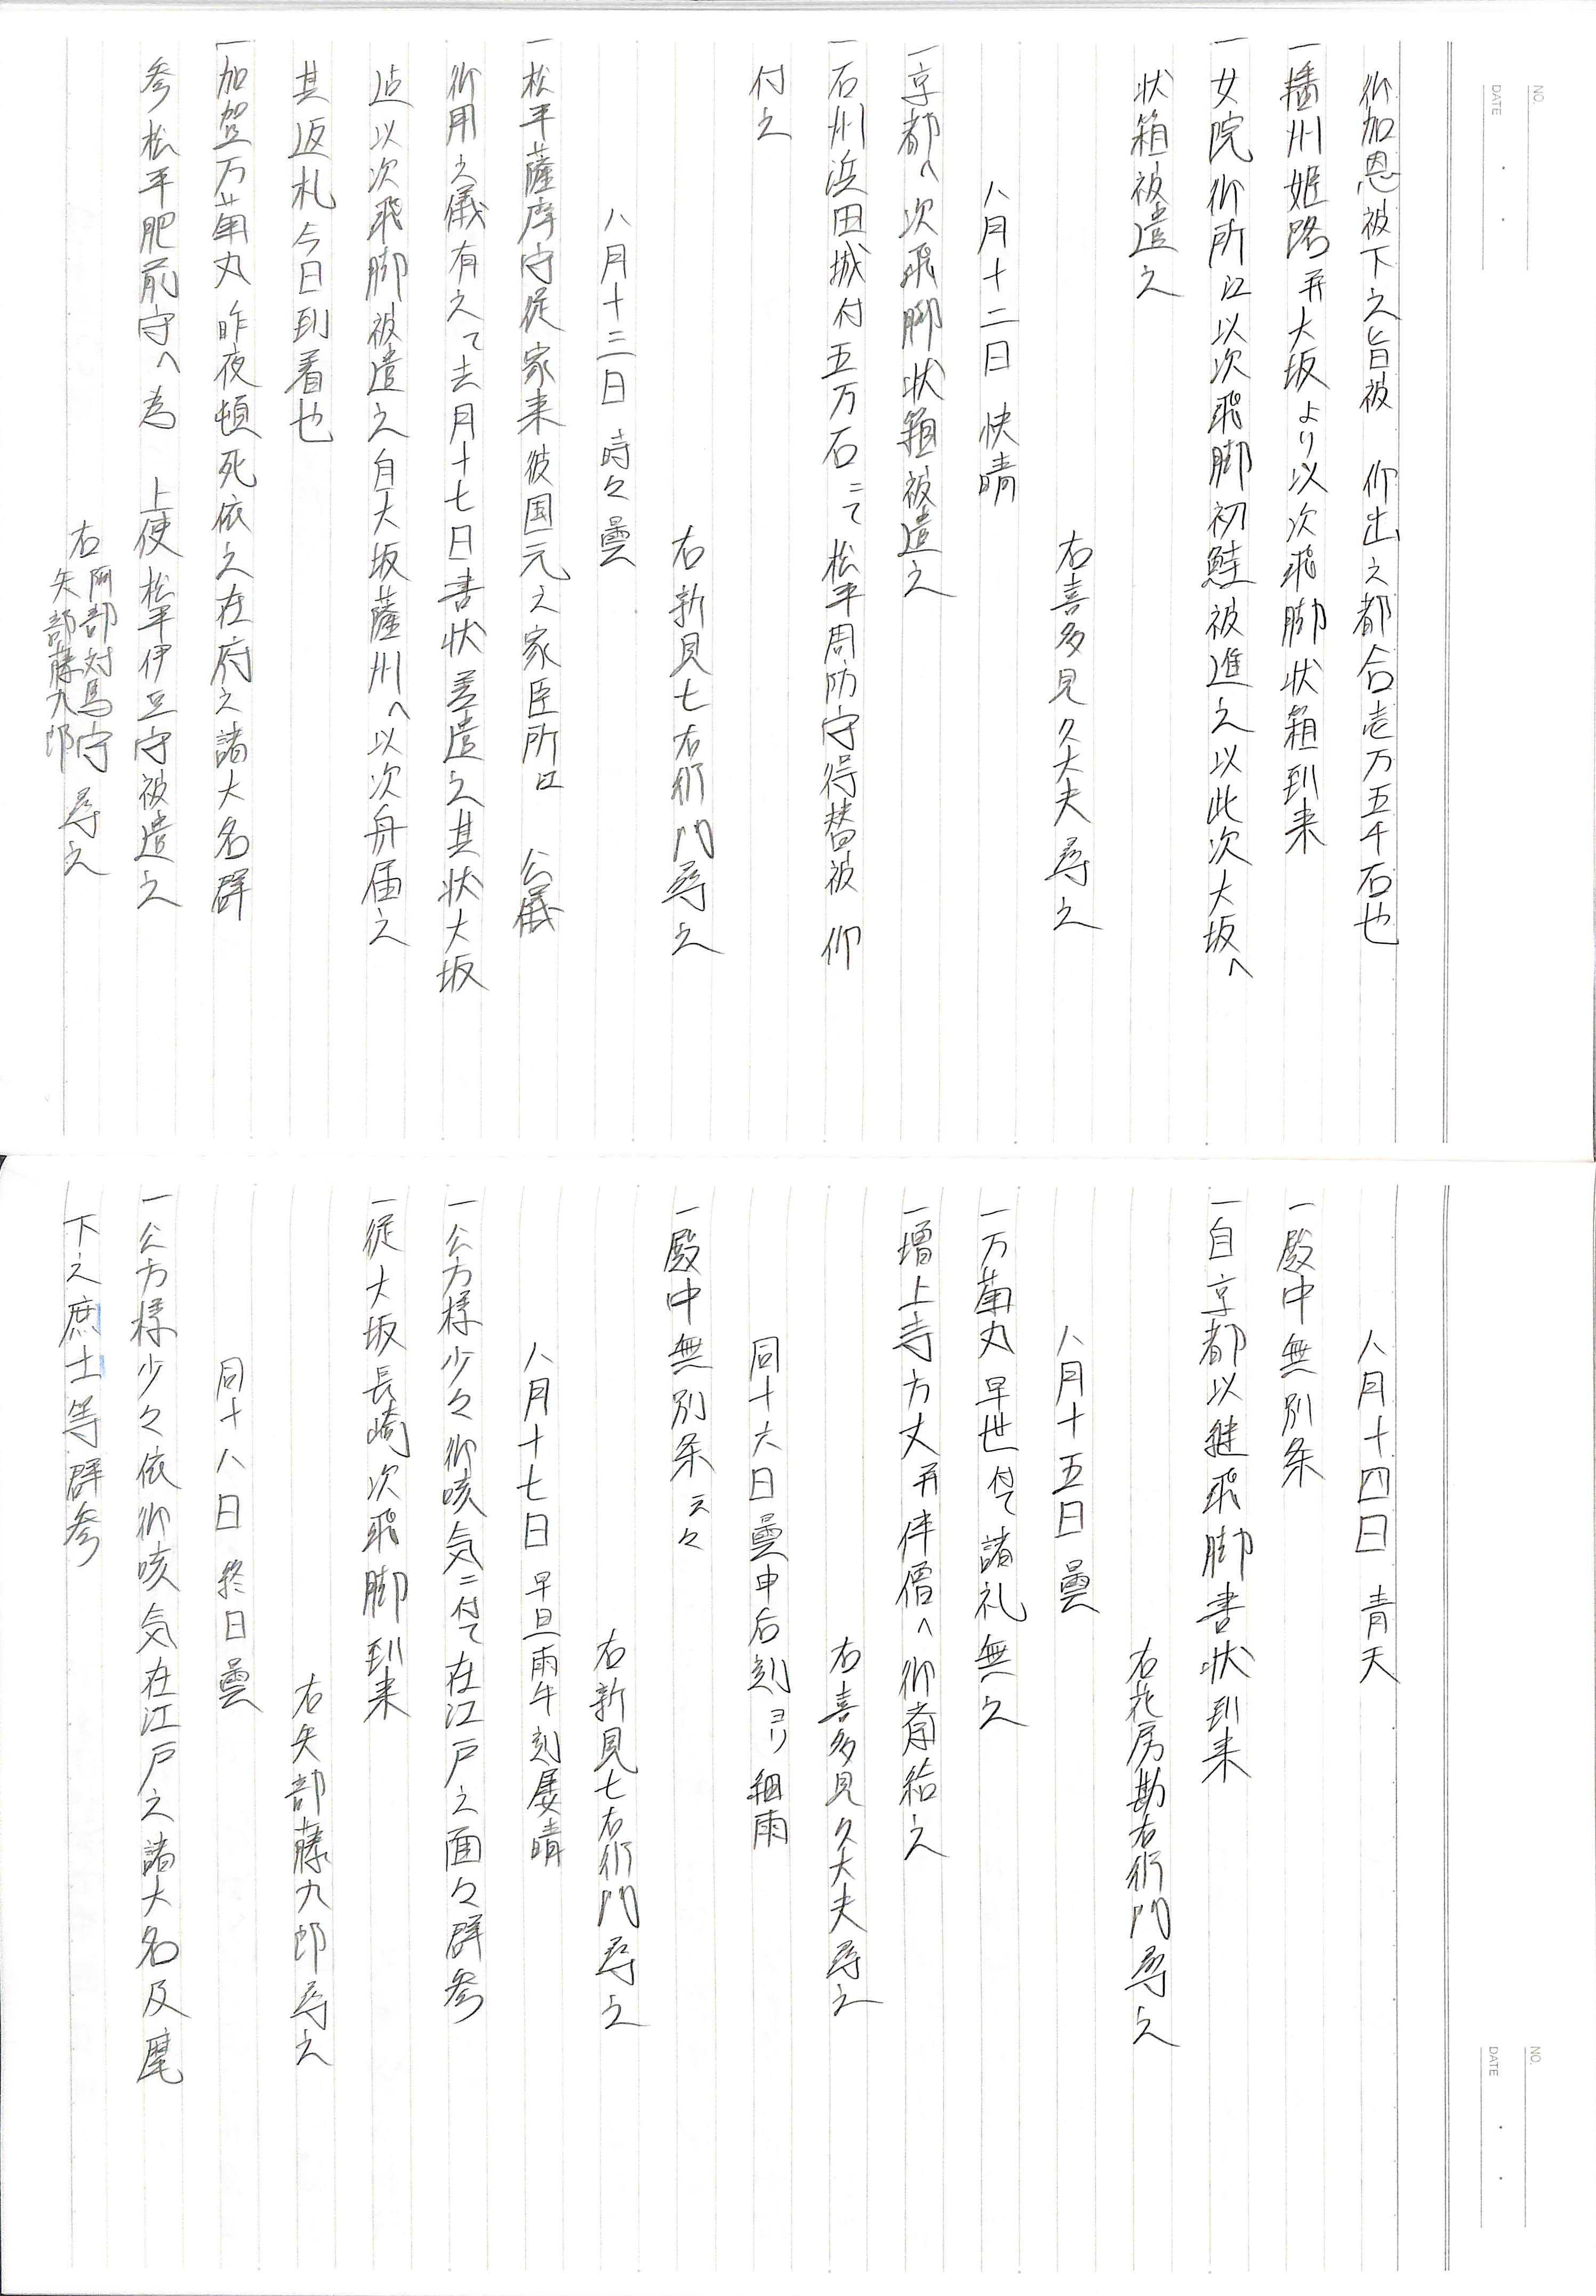 NO.
DATE
御加恩被下之旨被 仰出之都合壱万五千石也
一播州姫路并大坂より以次飛脚状箱到来
一女院御所江以次飛脚初鮭被進之以此次大坂へ
状箱被遣之
右喜多見久大夫尋之
八月十二日 快晴
一京都へ次飛脚状箱被遣之
一石州浜田城付五万石ニて松平周防守得替被 仰
付之
右新見七右衛門尋之
八月十三日 時々曇
一松平薩摩守従家来彼国元之家臣所江 公儀
御用之儀有之て去月十七日書状差遣之其状大坂
迄以次飛脚被遣之自大坂薩州へ以次舟届之
其返札今日到着也
一加賀万菊丸昨夜頓死依之在府之諸大名群
参松平肥前守へ為 上使松平伊豆守被遣之
右阿部対馬守
矢部藤九郎 尋之
NO.
DATE
八月十四日 青天
一殿中無別条
一自京都以継飛脚書状到来
右花房勘右衛門尋之
八月十五日 曇
一万菊丸早世付て諸礼無之
一増上寺方丈并伴僧へ御斎給之
右喜多見久大夫尋之
同十六日曇申后刻ヨリ細雨
一殿中無別条云々
右新見七右衛門尋之
八月十七日 早旦雨午刻属晴
一公方様少々御咳気ニ付て在江戸之面々群参
一従大坂長崎次飛脚到来
右矢部藤九郎尋之
同十八日 終日曇
一公方様少々依御咳気在江戸之諸大名及麾
下之庶士等群参